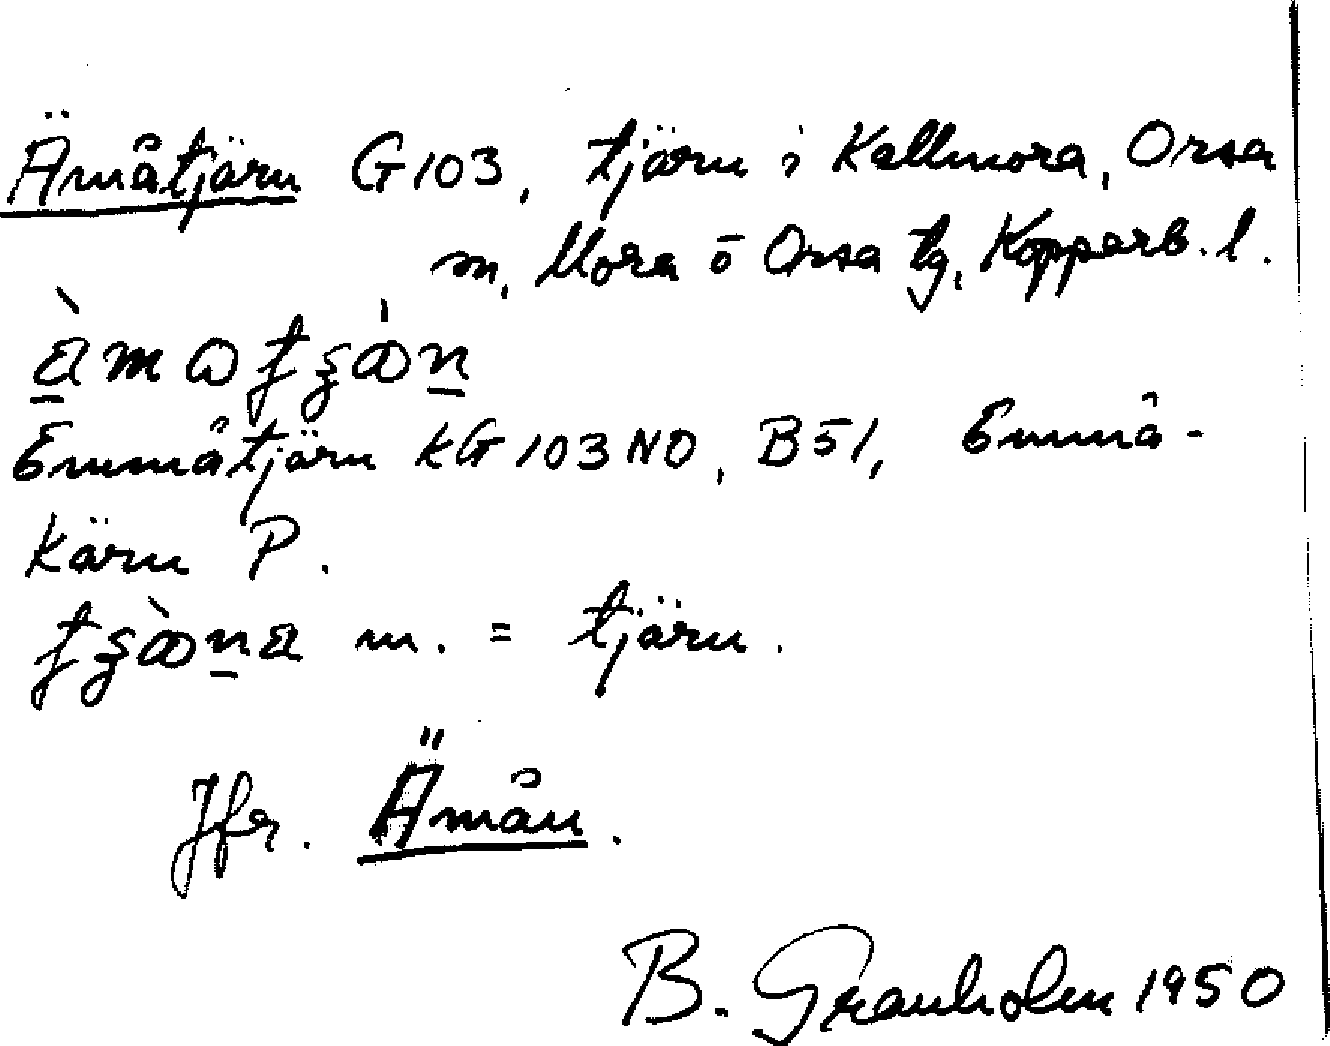 Ämåtjärn G103, tjärn i Kallmora, Orsa
m, Mora o Orsa tg, Kopparb. l.
Emmåtjärn kG 103 NO, B51, Emmå-
kärn P.
m. = tjärn.
Jfr. Ämån.
B. Granholm 1950